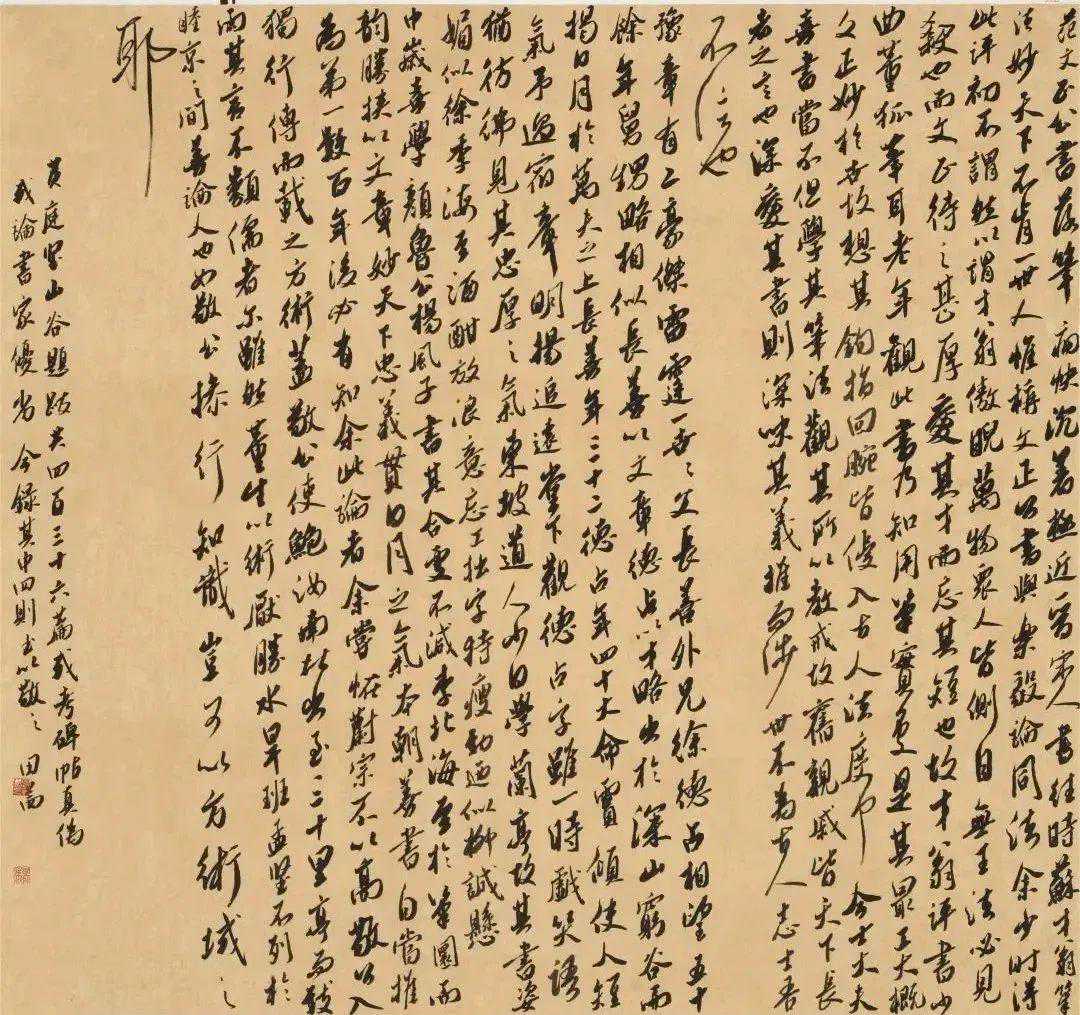 范文正公書落筆痛快沉著極近晉宋人書往時蘇才翁筆
法妙天下不肯一世人惟稱文正公書與樂毅論同法余少時得
此評初不謂然以謂才翁傲睨萬物眾人皆側目無王法必見
殺也而文正待之甚厚愛其才而忘其短也故才翁評書少
曲董狐筆耳老年觀此書乃知用筆實處是其最工大概
文正妙於世故想其鈎指回腕皆優入古人法度中今士大夫
喜書當不但學其筆法觀其所以教戒故舊親戚皆天下長
者之言也深愛其書則深味其義推而涉世不為吉人志士吾
不信也
豫章有二豪傑雷霆一世之父長善外兄徐德占相望五十
餘年舅甥略相似長善以文章德占以才略出於深山窮谷而
揭日月於萬夫之上長善年三十二德占年四十大命賈傾使人短
氣予過宿章明揚追遠堂下觀德占字雖一時戲笑語
猶彷彿見其忠厚之氣東坡道人少日學蘭亭故其書姿
媚似徐季海至酒酣放浪意忘工拙字特瘦勁迺似柳誠懸
中歲喜學顏魯公楊風子書其合處不減李北海至於筆圜而
韻勝挾以文章妙天下忠義貫日月之氣本朝善書自當推
為第一數百年後必有知余此論者余嘗恠蔚宗不以高敬公入
獨行傳而載之方術蓋敬公使鮑汝南北出至二十里亭而致
雨其言不類儒者尔雖然董生以術厭勝水旱班孟堅不列於
睦京之間善論人也如敬公操行知識豈可以方術域之
耶
黃庭堅山谷題跋共四百三十六篇或考碑帖真偽
或論書家優劣今錄其中四則書以敬之田